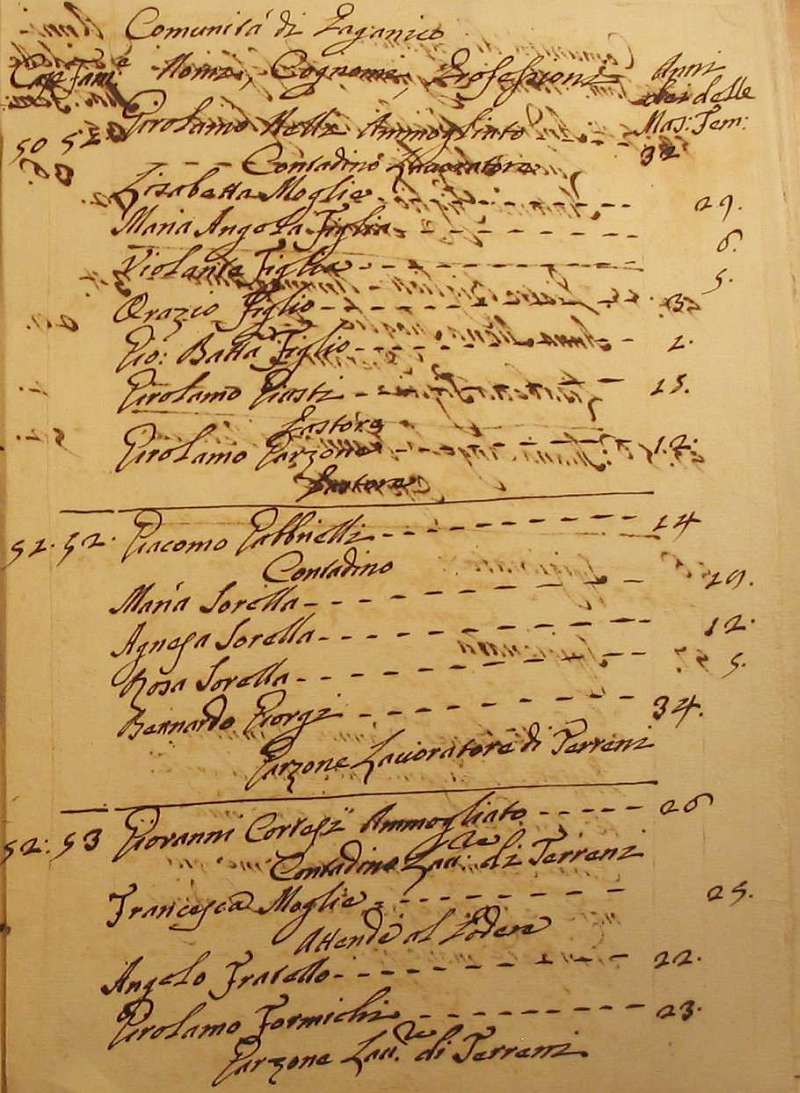 Comunità di Paganico
Case Fam:e Nomi, Cognomi, Professioni Anni
dei delle
Mas: Fem:
50 52 Girolamo Nelli Ammogliato 32
Contadino Lavoratore
Lisabetta Moglie 29.
Maria Angola Figlia 6.
Violante Figlia 5.
Orazio Figlio 3
Gio: Batta Figlio 2.
Girolamo Giasti 25.
Pastore
Girolamo Garzone 12.
Pastore
52. 52. Giacomo Gabbrielli 24
Contadino
Maria Sorella 29.
Agnesa Sorella 12.
Rosa Sorella 5.
Bernardo Giorgi 34.
Garzone Lavoratore di Terreni
52: 53 Giovanni Cortesi Ammogliato 26
Contadino Lau:re di Terreni
Francesca Moglie 25.
Attende al Podere
Angelo Fratello 22.
Girolamo Formichi 23.
Garzone Lau.re di Terreni